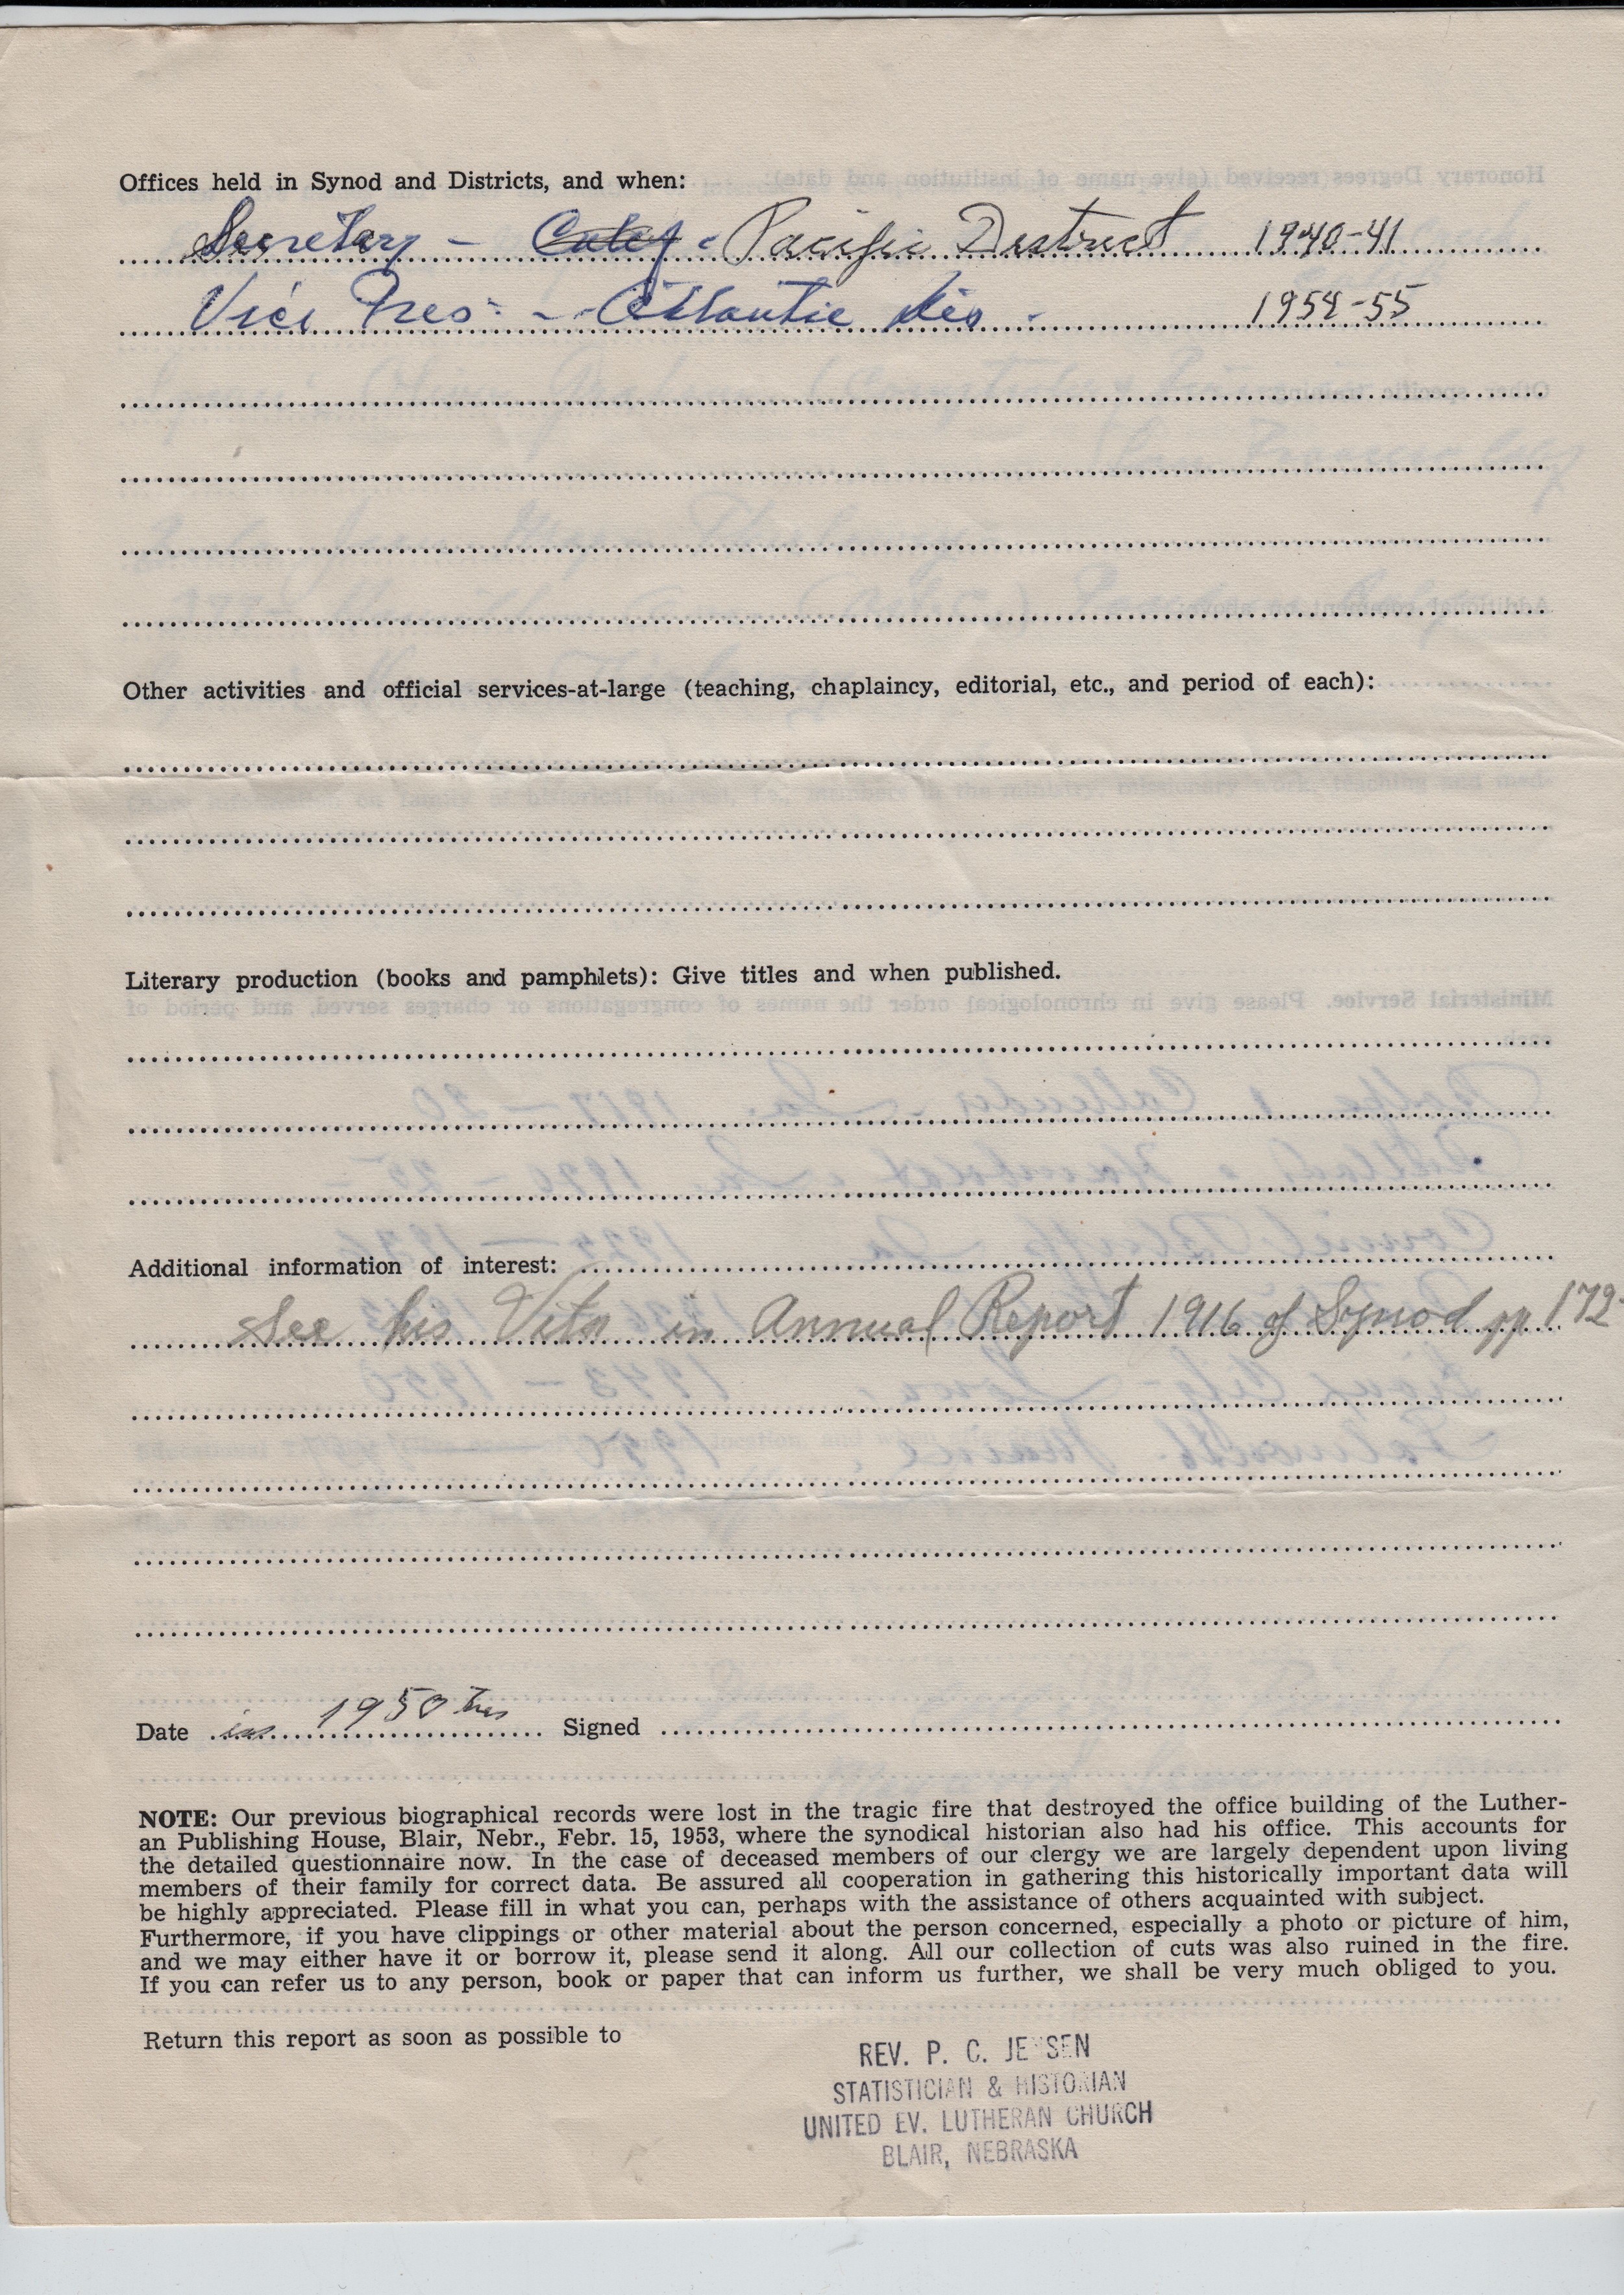 Offices held in Synod and Districts, and when:
Secretary - Calif - Pacific District 1940-41
Vice Pres. - Atlantic dis. 1954-55
Other activities and official services-at-large (teaching, chaplaincy, editorial, etc., and period of each):
Literary production (books and pamphlets): Give titles and when published.
Additional information of interest:
See his Vita in Annual Report 1916 of Synod pp 172-
Date 1950 Signed
NOTE: Our previous biographical records were lost in the tragic fire that destroyed the office building of the Luther-
an Publishing House, Blair, Nebr., Febr. 15, 1953, where the synodical historian also had his office. This accounts for
the detailed questionnaire now. In the case of deceased members of our clergy we are largely dependent upon living
members of their family for correct data. Be assured all cooperation in gathering this historically important data will
be highly appreciated. Please fill in what you can, perhaps with the assistance of others acquainted with subject.
Furthermore, if you have clippings or other material about the person concerned, especially a photo or picture of him,
and we may either have it or borrow it, please send it along. All our collection of cuts was also ruined in the fire.
If you can refer us to any person, book or paper that can inform us further, we shall be very much obliged to you.
Return this report as soon as possible to
REV. P. C. JENSEN
STATISTICIAN & HISTORIAN
UNITED EV. LUTHERAN CHURCH
BLAIR, NEBRASKA